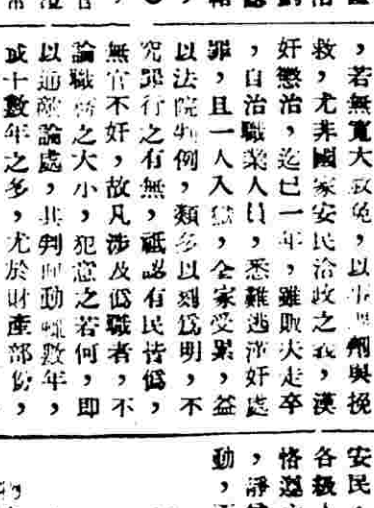 ，若無寬大赦免，以事調劑與挽
救，尤非國家安民治政之義，漢
奸懲治，迄已一年，雖販夫走卒
，自治職業人員，悉難逃漢奸處
罪，且一人入獄，全家受累，益
以法院判例，類多以刻爲明，不
究罪行之有無，祗認有民皆僞，
無官不奸，故凡涉及僞職者，不
論職務之大小，犯意之若何，即
以通敵論處，其判而動輒數年，
或十數年之多，尤於財產部份，
安民，
各級
恪遵
，靜
動，